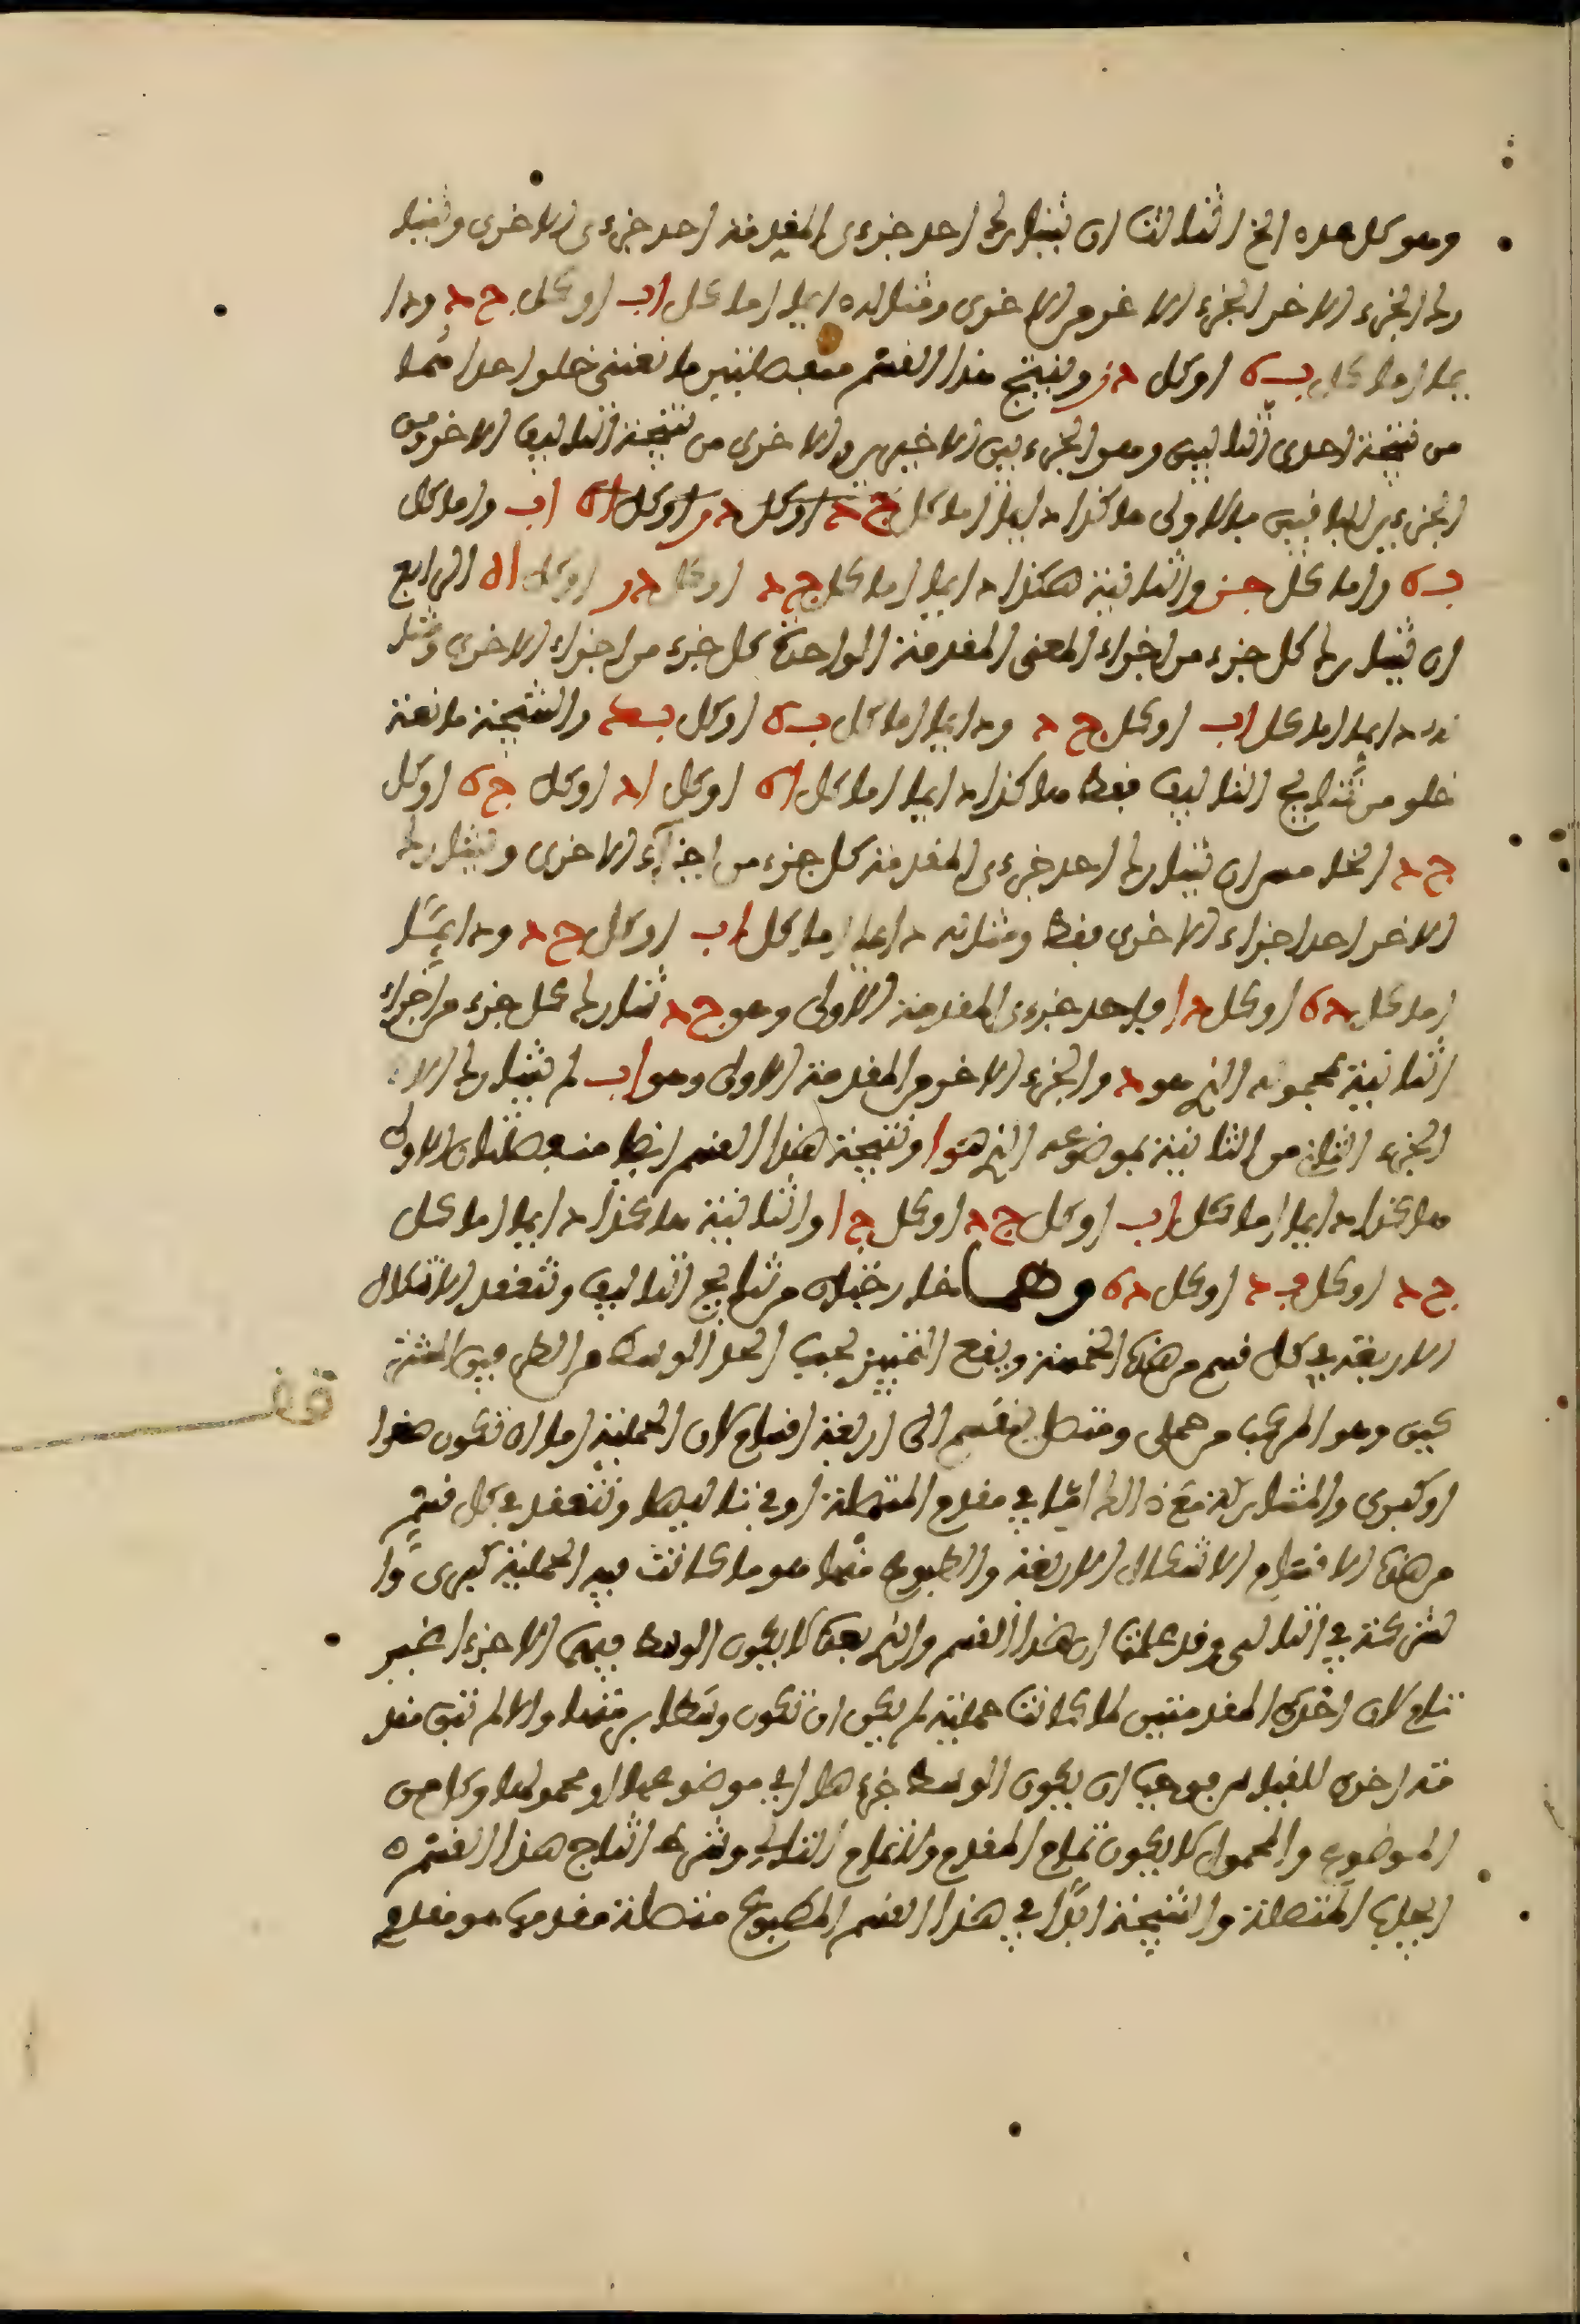 وهو كل هذه الخ الثالث ان يشارك احد جزءى المقدمة احد جزءى الاخرى ويشا
رك الجزء الاخر الجزء الاخر من الاخرى ومثاله دايما اما كل اب او كل ج د ودا
يما اما كل ب ه او كل د ز وينتج هذا القسم منفصلتين مانعتى خلو احداهما
من نتيجة احدى التاليفين وهو الجزءين الاخيرين والاخرى من نتيجة التاليف الاخر ومن
الجزءين الباقيين فالاولى هاكذا دايما اما كل ج د او كل د ز او كل اه اب واما كل
ب ه واما كل ج ز والثانية هكذا دايما اما كل ج د او كل د ز او كل اه الرابع
ان يشارك كل جزء من اجزاء المعنى المقدمة الواحدة كل جزء من اجزاء الاخرى ومثا
له دايما اما كل اب او كل ج د ودايما اما كل ب ه او كل ب د والنتيجة مانعة
خلو من نتايج التاليف فقط هاكذا دايما اما كل اه او كل اد او كل ج ه او كل
ج د الخامس ان يشارك احد جزءى المقدمة كل جزء من اجزاء الاخرى ويشارك
الاخر احد اجزاء الاخرى فقط ومثاله دايما اما كل اب او كل ج د ودايما
اما كل د ه او كل د ا فاحد جزءى المقدمة الاولى وهو ج د شارك كل جزء من اجزاء
الثانية بمحموله الذى هو د والجزء الاخر من المقدمة الاولى وهو اب لم يشارك الا
الجزء الثانى من الثانية بموضوعه الذى هو ا ونتيجة هذا القسم ايضا منفصلتان الاولى
هاكذا دايما اما كل اب او كل ج د او كل ج ا والثانية هاكذا دايما اما كل
ج د او كل ب د او كل د ه وهما خارجتان من نتايج التاليف وتنعقد الاشكال
الاربعة فى كل قسم من هذه الخمسة ويقع التمييز بحسب الحد الوسط من الطرفين المشتر
كين وهو المركب من حملى ومتصل ينقسم الى اربعة اقسام لان الحملية اما ان تكون صغرا
او كبرى والمشاركة مع ذالك اما فى مقدم المتصلة او فى تاليها وتنعقد فى كل قسم
من هذه الاقسام الاشكال الاربعة والمطبوع منها هو ما كانت فيه الحملية كبرى وا
لشركة فى التالى وقد علمت ان هذا القسم والذى بعده لا يكون الوسط فيهما الا جزءا غير
تام لان احدى المقدمتين لما كانت حملية لم يكن ان تكون وسطا برمتها والا لم تبق مقد
مة اخرى للقياس فوجب ان يكون الوسط جزءها اى موضوعها او محمولها وكل من
الموضوع والمحمول لا يكون تمام المقدم ولا تمام التالى وشرط انتاج هذا القسم
ايجاب المتصلة والنتيجة ابدا فى هذا القسم المطبوع متصلة مقدمها هو مقدم
قف